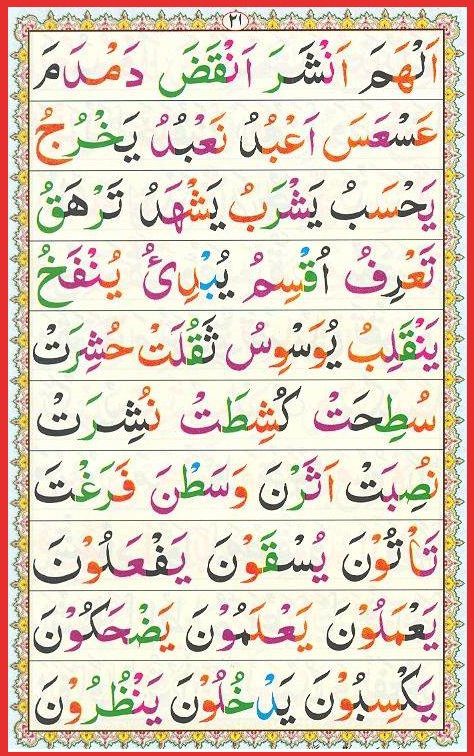 ٢١
اَلْهَمَ اَنْشَرَ اَنْقَضَ دَمْدَمَ
عَسْعَسَ اَعْبُدُ نَعْبُدُ يَخْرُجُ
يَحْسَبُ يَشْرَبُ يَشْهَدُ تَرْهَقُ
تَعْرِفُ اُقْسِمُ يُبْدِئُ يُنْفَخُ
يَنْقَلِبُ يُوَسْوِسُ ثَقُلَتْ حُشِرَتْ
سُطِحَتْ كُشِطَتْ نُشِرَتْ
نُصِبَتْ اَثَرْنَ وَسَطْنَ فَرَغْتَ
تَأْتُوْنَ يُسْقَوْنَ يَفْعَلُوْنَ
يَعْمَلُوْنَ يَعْلَمُوْنَ يَضْحَكُوْنَ
يَكْسِبُوْنَ يَدْخُلُوْنَ يَنْظُرُوْنَ